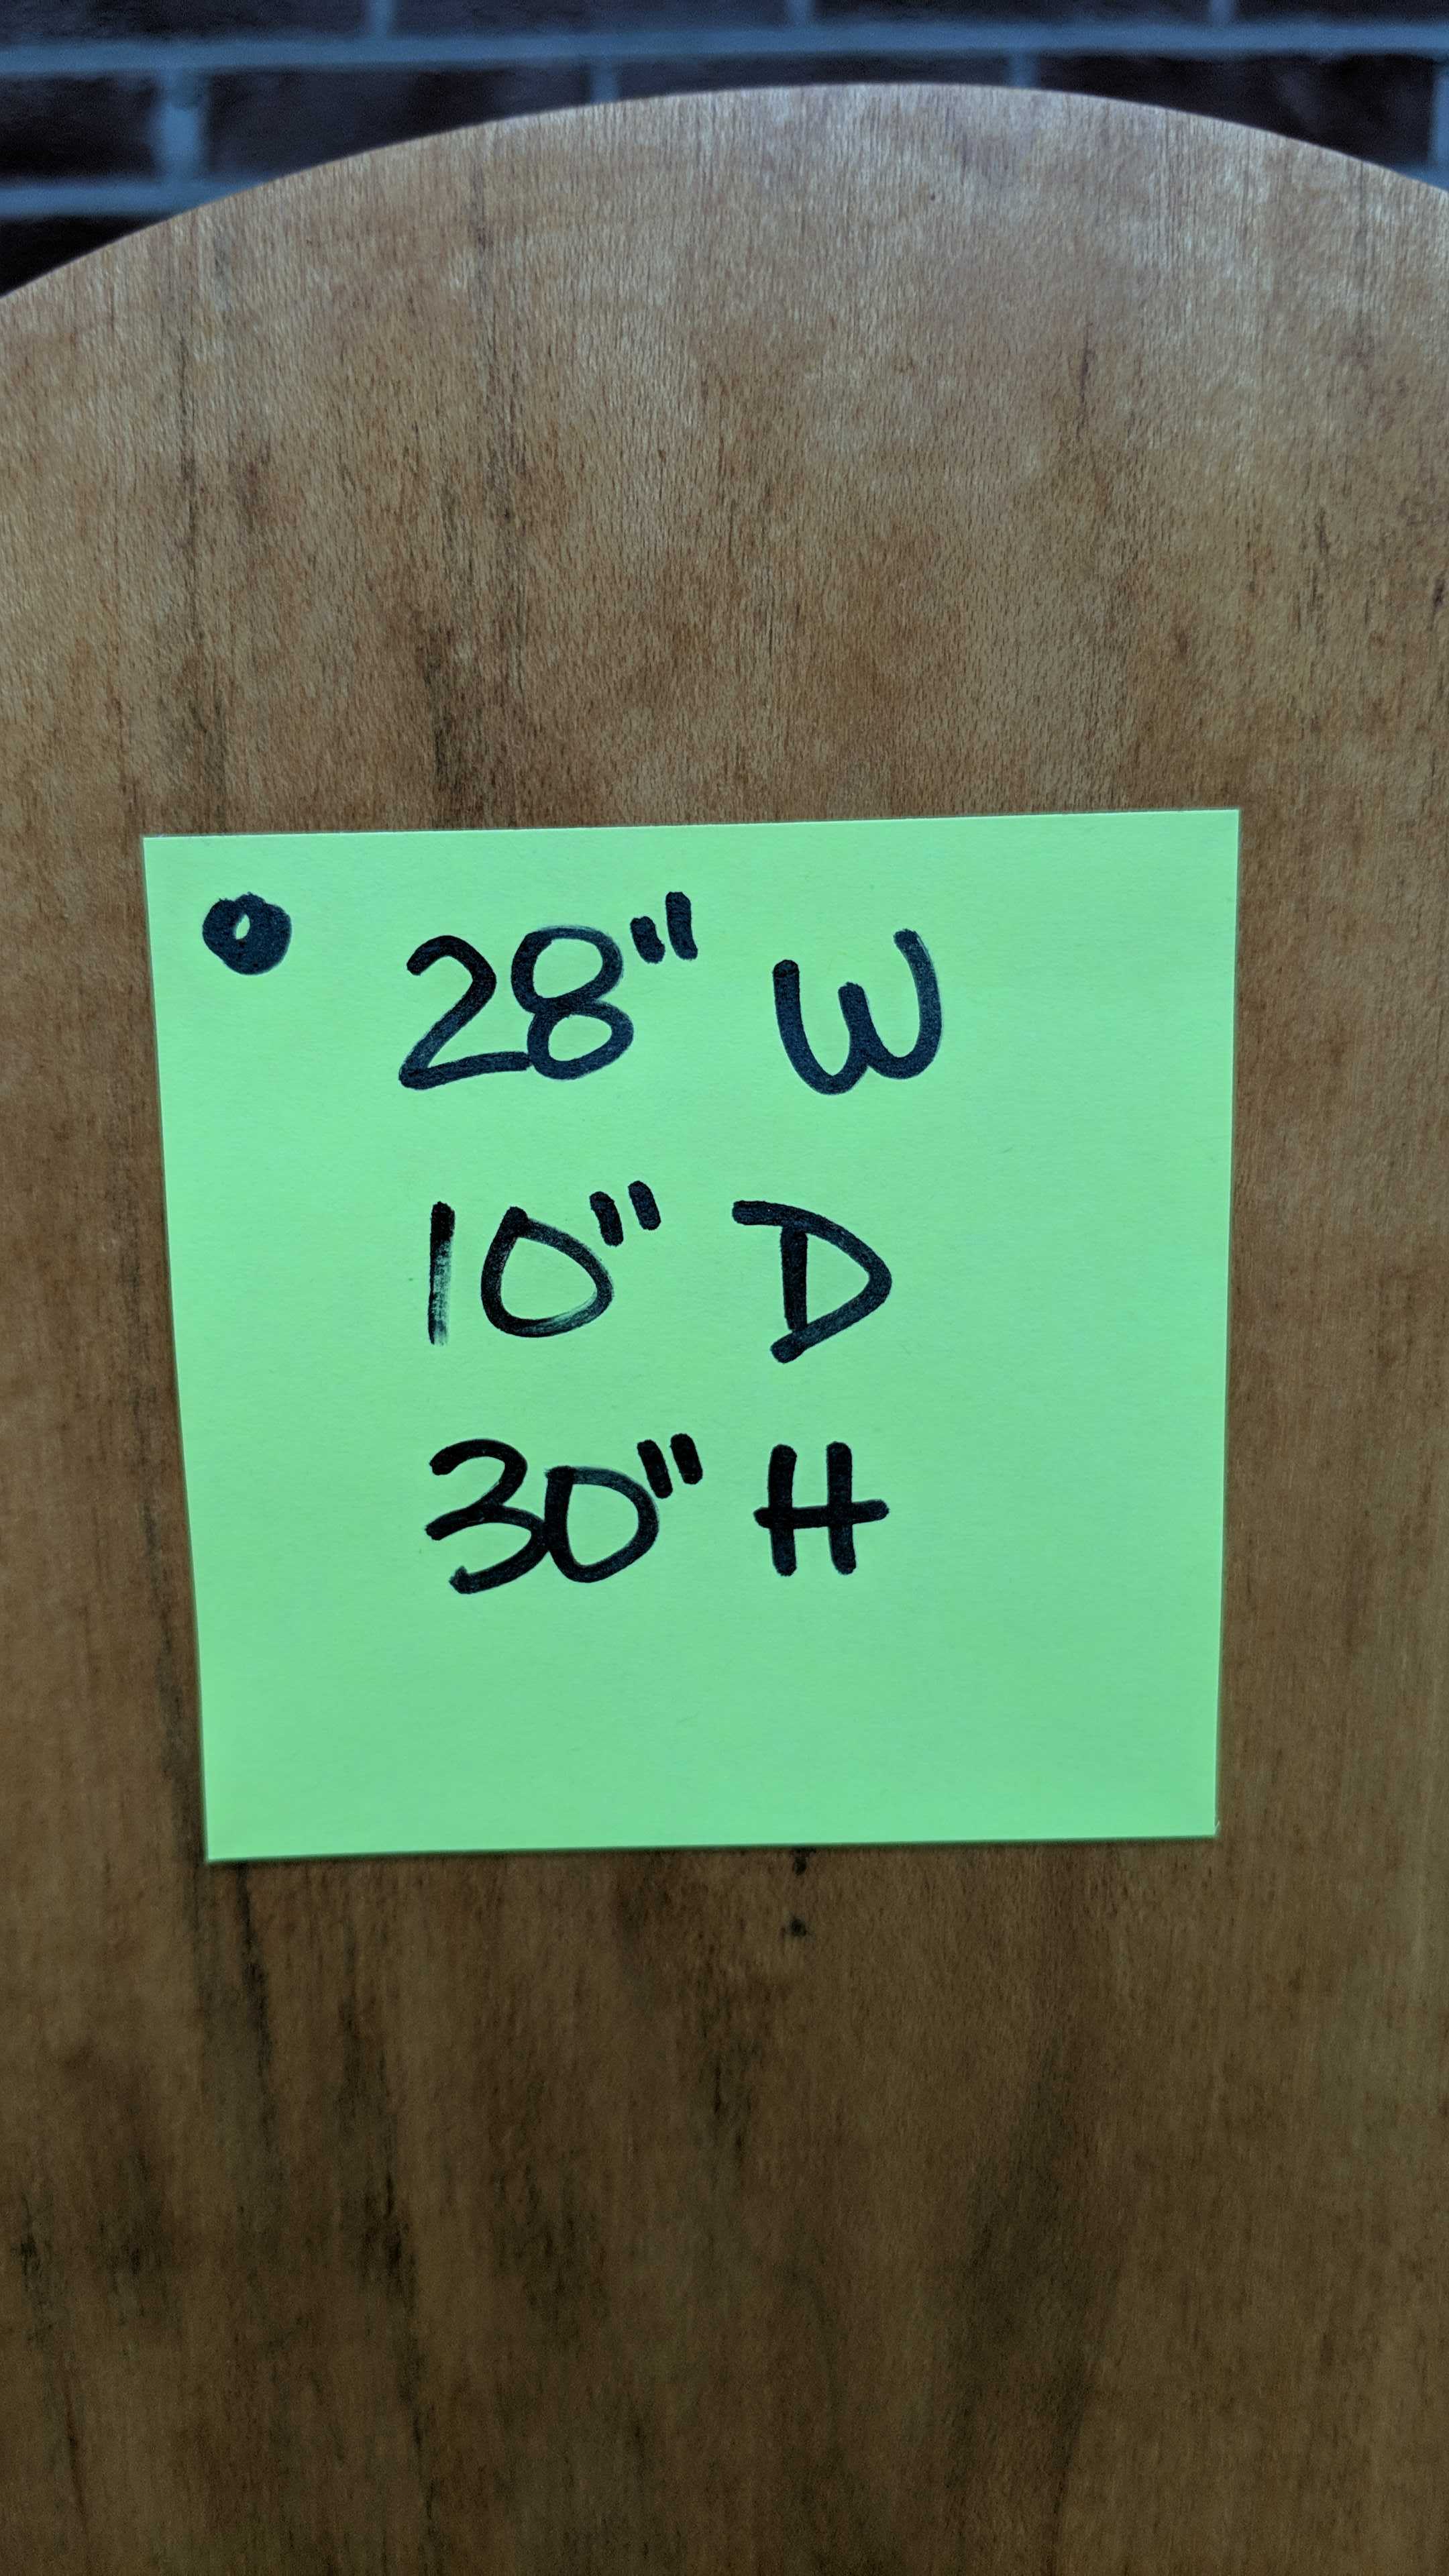 • 28" W
10" D
30" H